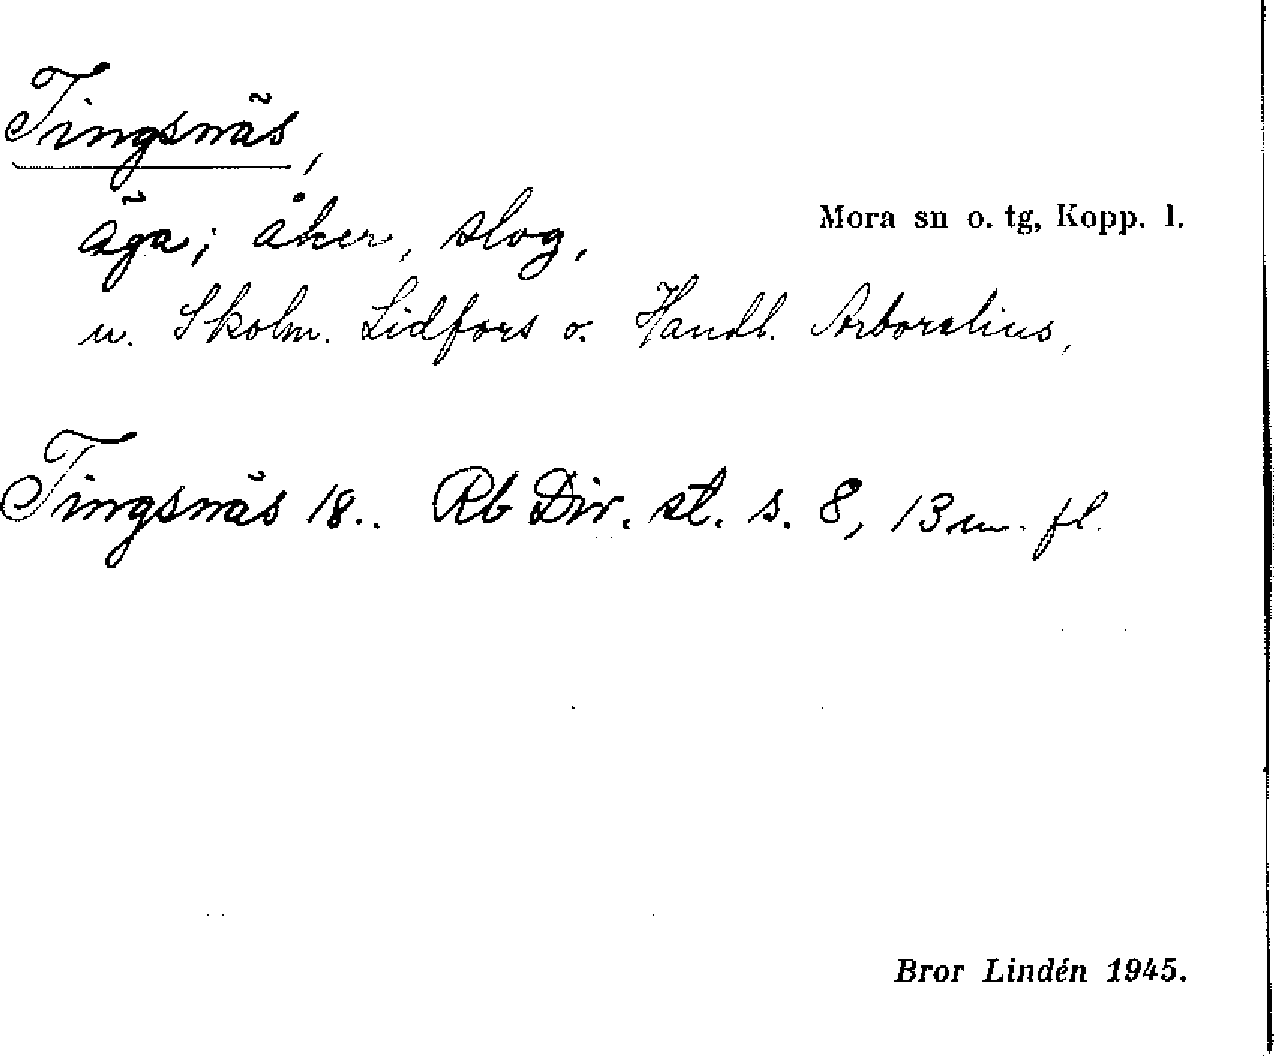 Tingsnäs,
äga; åker, slog,
Mora sn o. tg, Kopp. l.
u. Skolm. Lidfors o. Handl. Arborelius,
Tingsnäs 18.. Rb Div. st. s. 8, 13 m. fl.
Bror Lindén 1945.